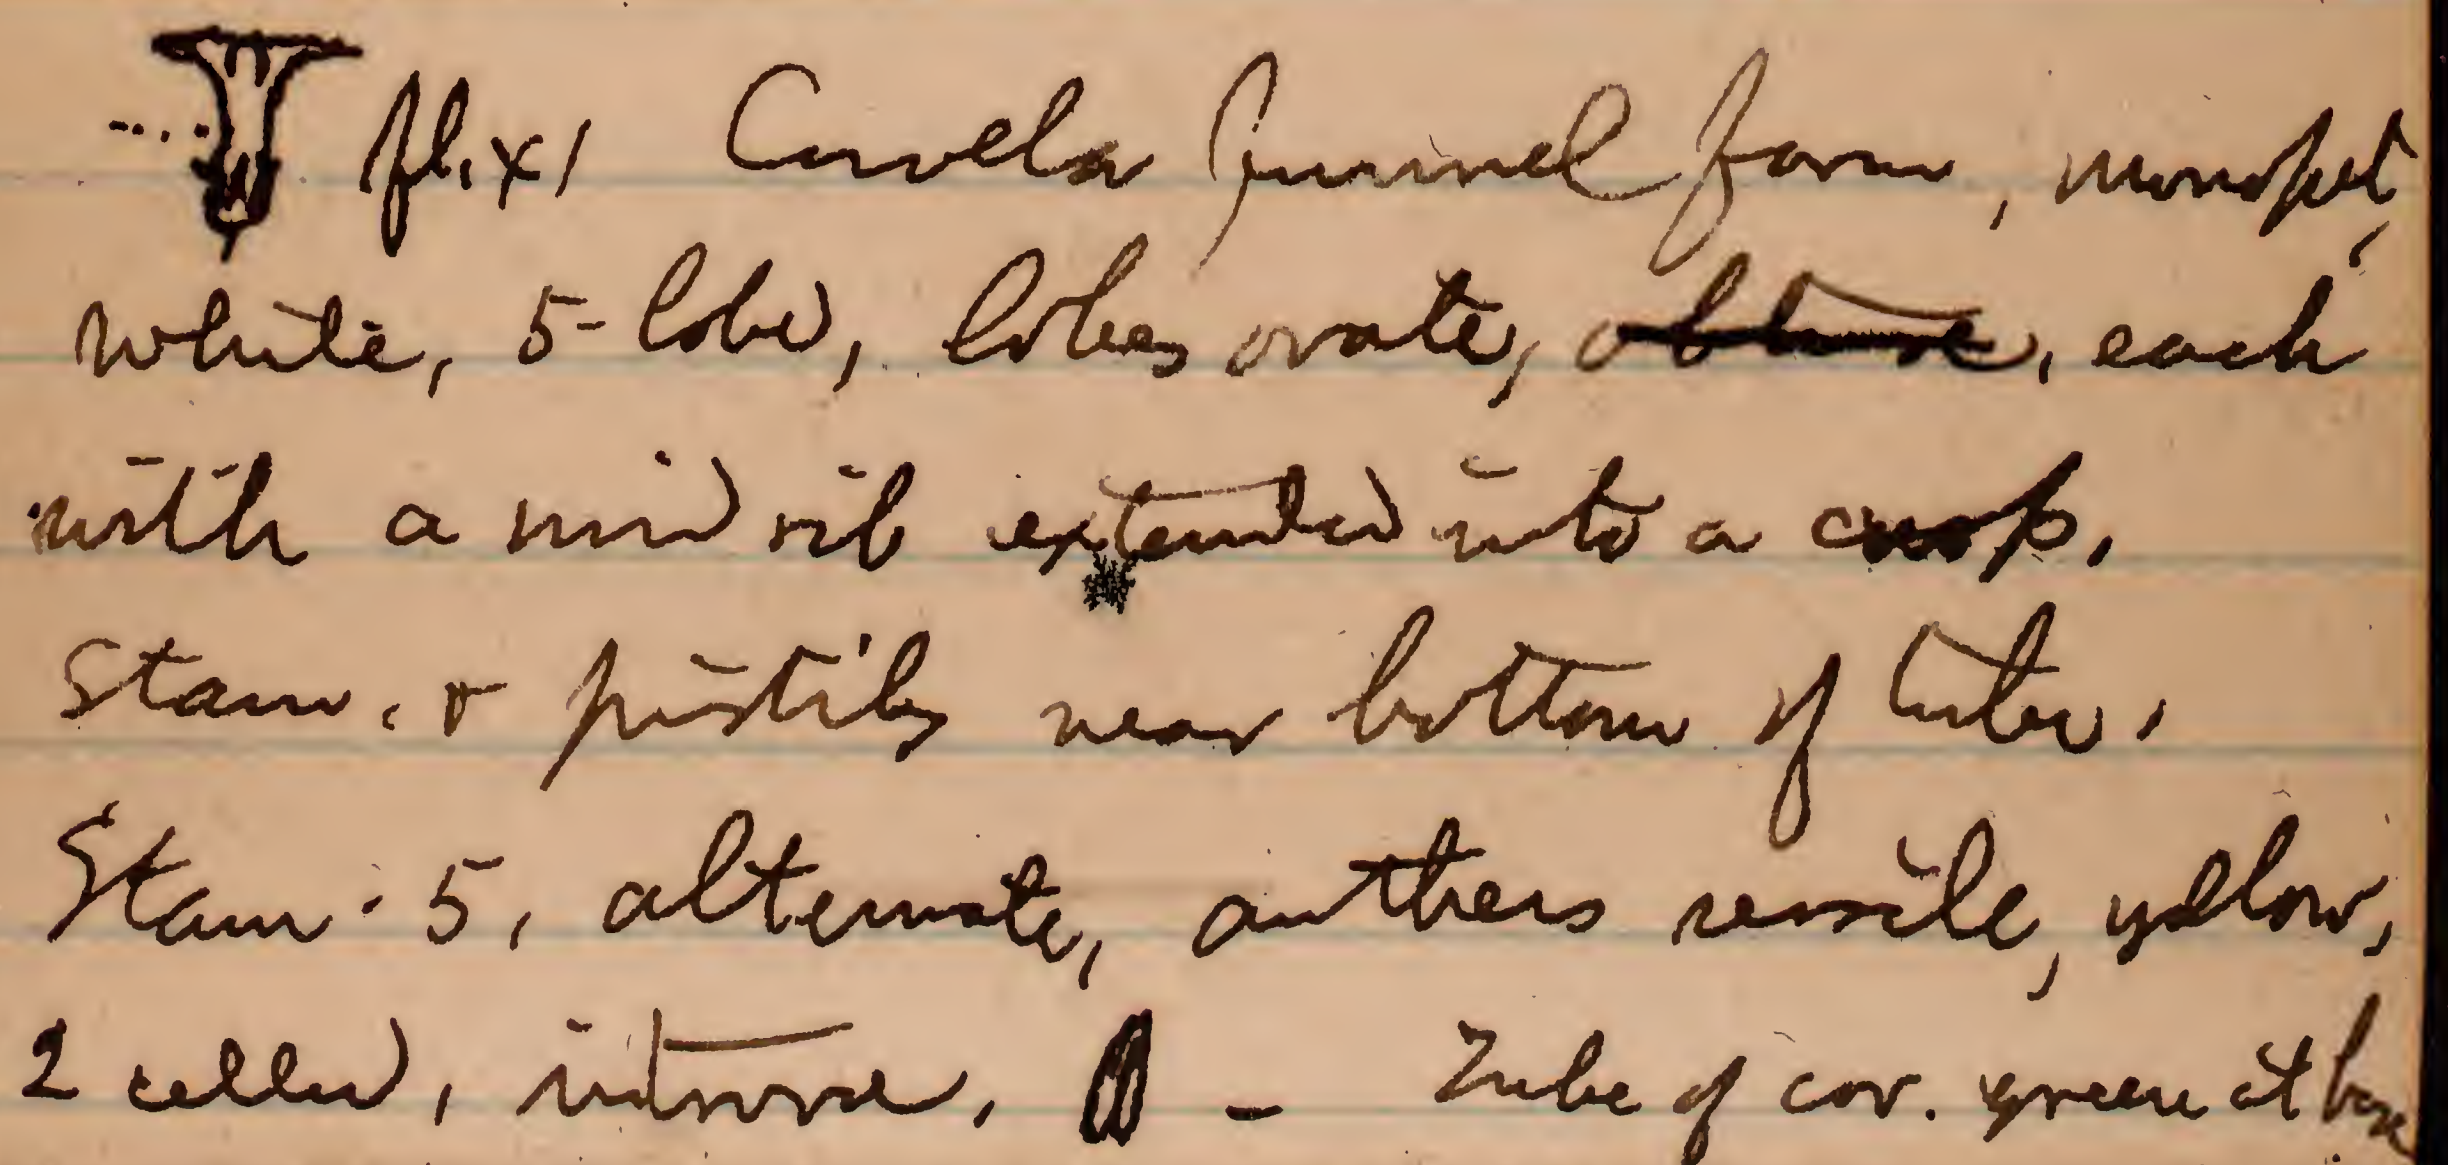 fl. x 1 Corolla funnel form, monopet,
white, 5-lobed, lobes ovate, obtuse, each
with a mid rib extended into a cusp.
Stam. & pistils near bottom of tube.
Stam. 5, alternate, anthers sessile, yellow,
2 celled, introrse. – Tube of cor. green at base